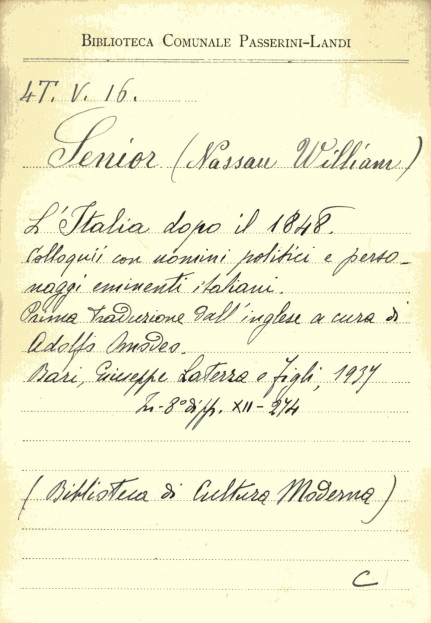 BIBLIOTECA COMUNALE PASSERINI-LANDI
4T. V. 16.
Senior (Nassau William)
L'Italia dopo il 1848.
Colloquii con uomini politici e perso-
naggi eminenti italiani.
Prima traduzione dall'inglese a cura di
Adolfo Omodeo.
Bari, Giuseppe Laterza e figli, 1937
In-8° di pp. XII-274
(Biblioteca di Cultura Moderna)
C